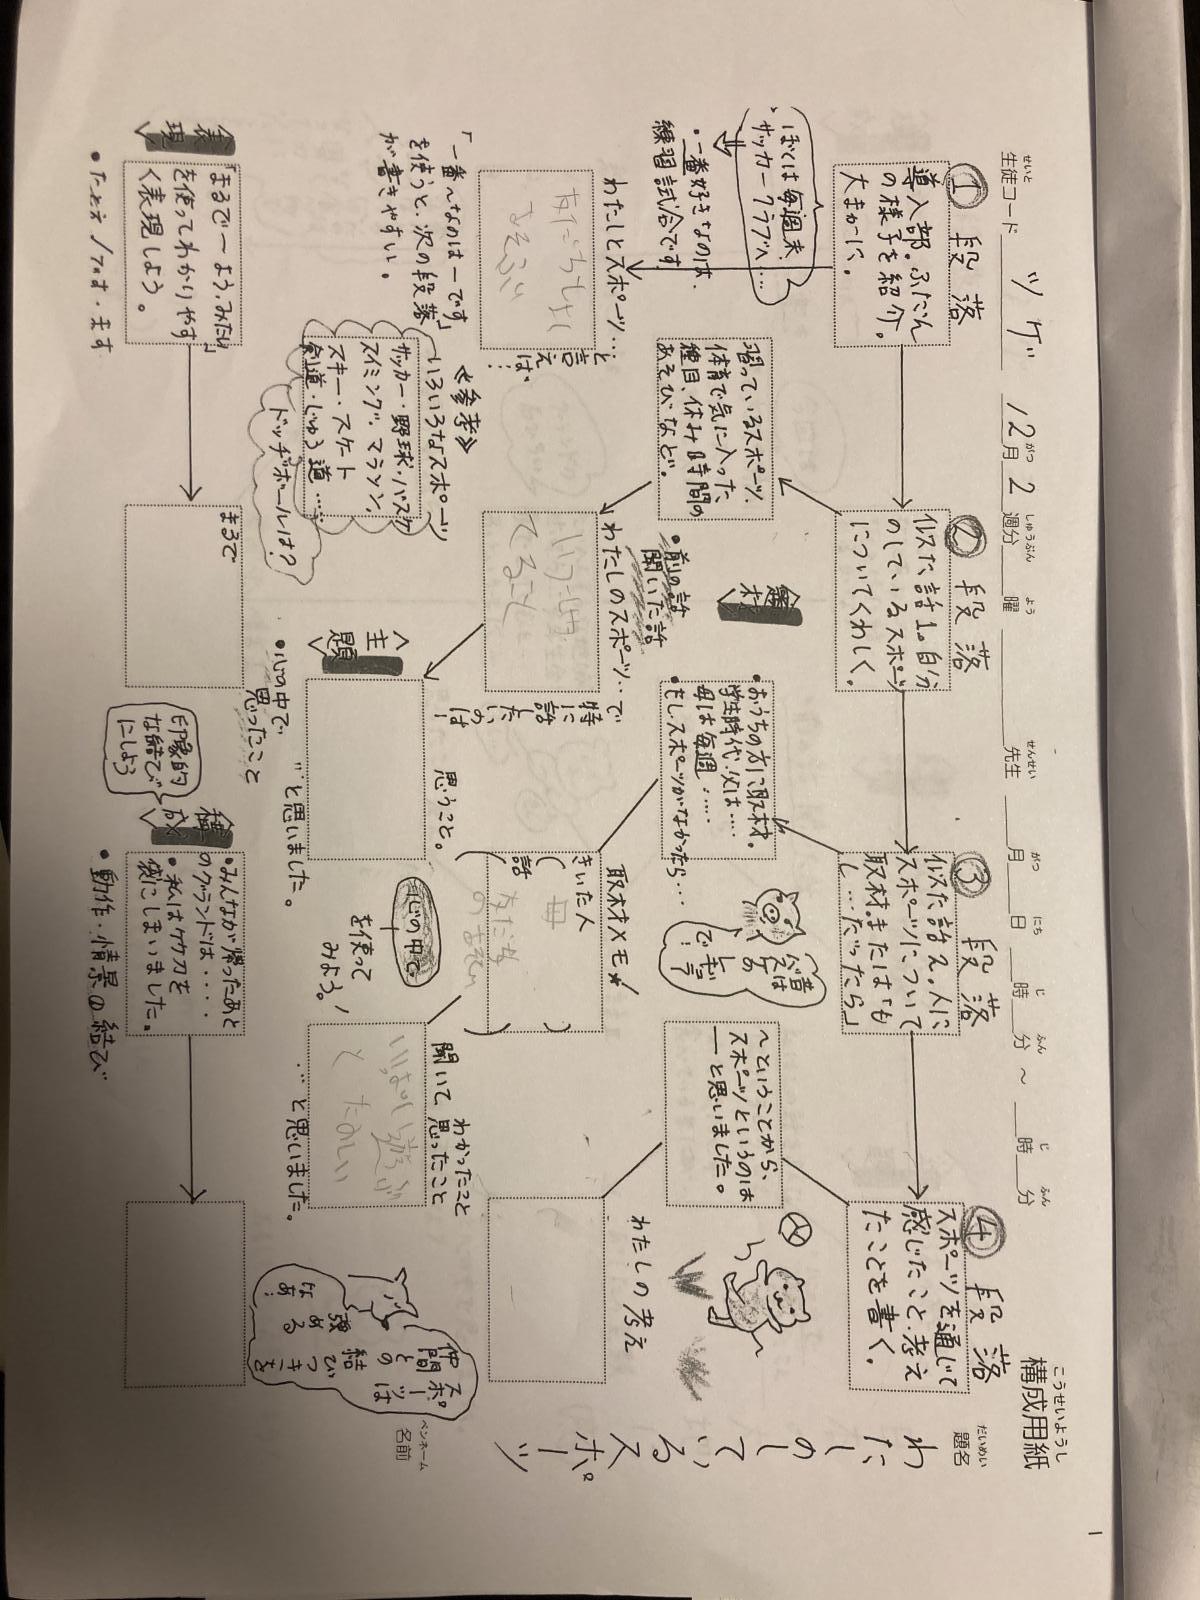 構成用紙
こうせいようし
題名
だいめい
わたしのしているスポーツ
名前
ペンネーム
生徒コード
せいと
ツゲ
12月2週分 曜 先生 月 日 時 分 ~ 時 分
がつ しゅうぶん よう せんせい がつ にち じ ふん じ ふん
①段落
導入部。ふだん
の様子を紹介。
大まかに。
ぼくは毎週末、
サッカークラブへ…
・一番好きなのは、
練習試合です
わたしとスポーツ…
と言えば、…
「一番〜なのは―です」
を使うと、次の段落
が書きやすい。
②段落
似た話1。自分
のしているスポーツ
についてくわしく。
習っているスポーツ、
体育で気に入った
種目、休み時間の
あそびなど。
題材
・前の話
聞いた話
わたしのスポーツ…で
特に話したいのは!
てること
《参考》
いろいろなスポーツ
サッカー・野球・バスケ
スイミング、マラソン、
スキー・スケート
剣道・じゅう道……
ドッヂボールは?
③段落
似た話2。人に
スポーツについて
取材。または「も
し…だったら」
・おうちの方に取材。
学生時代、父は…
母は毎週……
・もしスポーツがなかったら…
昔は
バスケの
レギュラー
で!
取材メモ★
きいた人
( 母 )
話
( )
④段落
スポーツを通じて
感じたこと、考え
たことを書く。
〜ということから、
スポーツというのは
――と思いました。
わたしの考え
主題
思うこと。
…と思いました。
・心の中で
思ったこと
心の中で
を使って
みよう!
わかったこと
聞いて思ったこと
と たのしい
…と思いました。
スポーツは
仲間との
結びつきを
強める
なあ!
表現
「まるで〜よう、みたい」
を使ってわかりやす
く表現しよう。
まるで
構成
印象的
な結び
にしよう
・みんなが帰ったあと
のグランドは・・・
・私はケガを
感にしまいました。
・動作・情景の結び
1